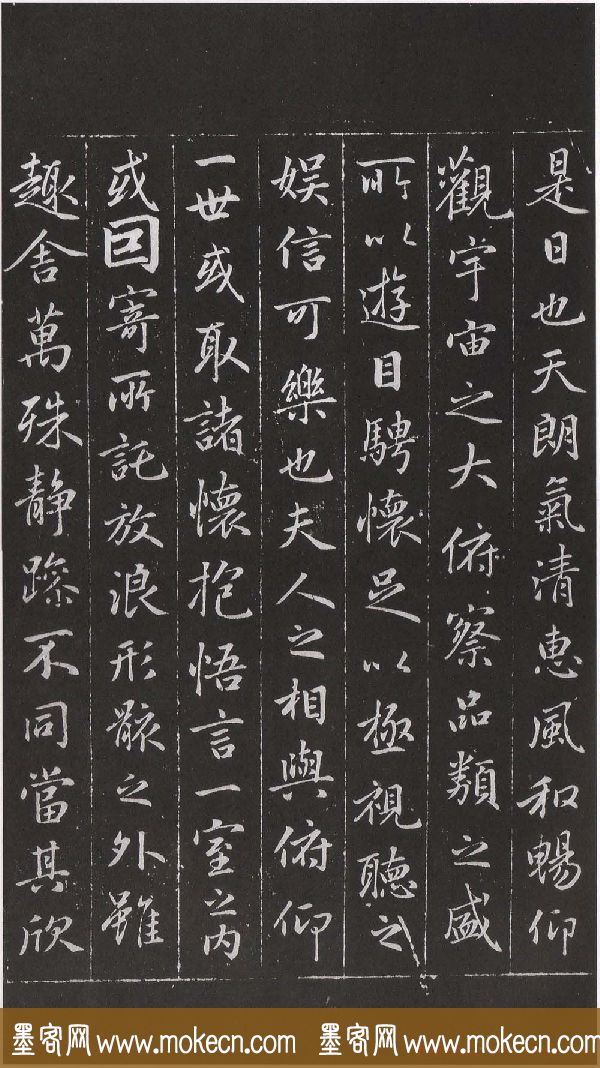 是日也天朗氣清惠風和暢仰
觀宇宙之大俯察品類之盛
所以遊目騁懷足以極視聽之
娛信可樂也夫人之相與俯仰
一世或取諸懷抱悟言一室之內
或因寄所託放浪形骸之外雖
趣舍萬殊靜躁不同當其欣
墨客网 www.mokecn.com 墨客网 www.mokecn.com